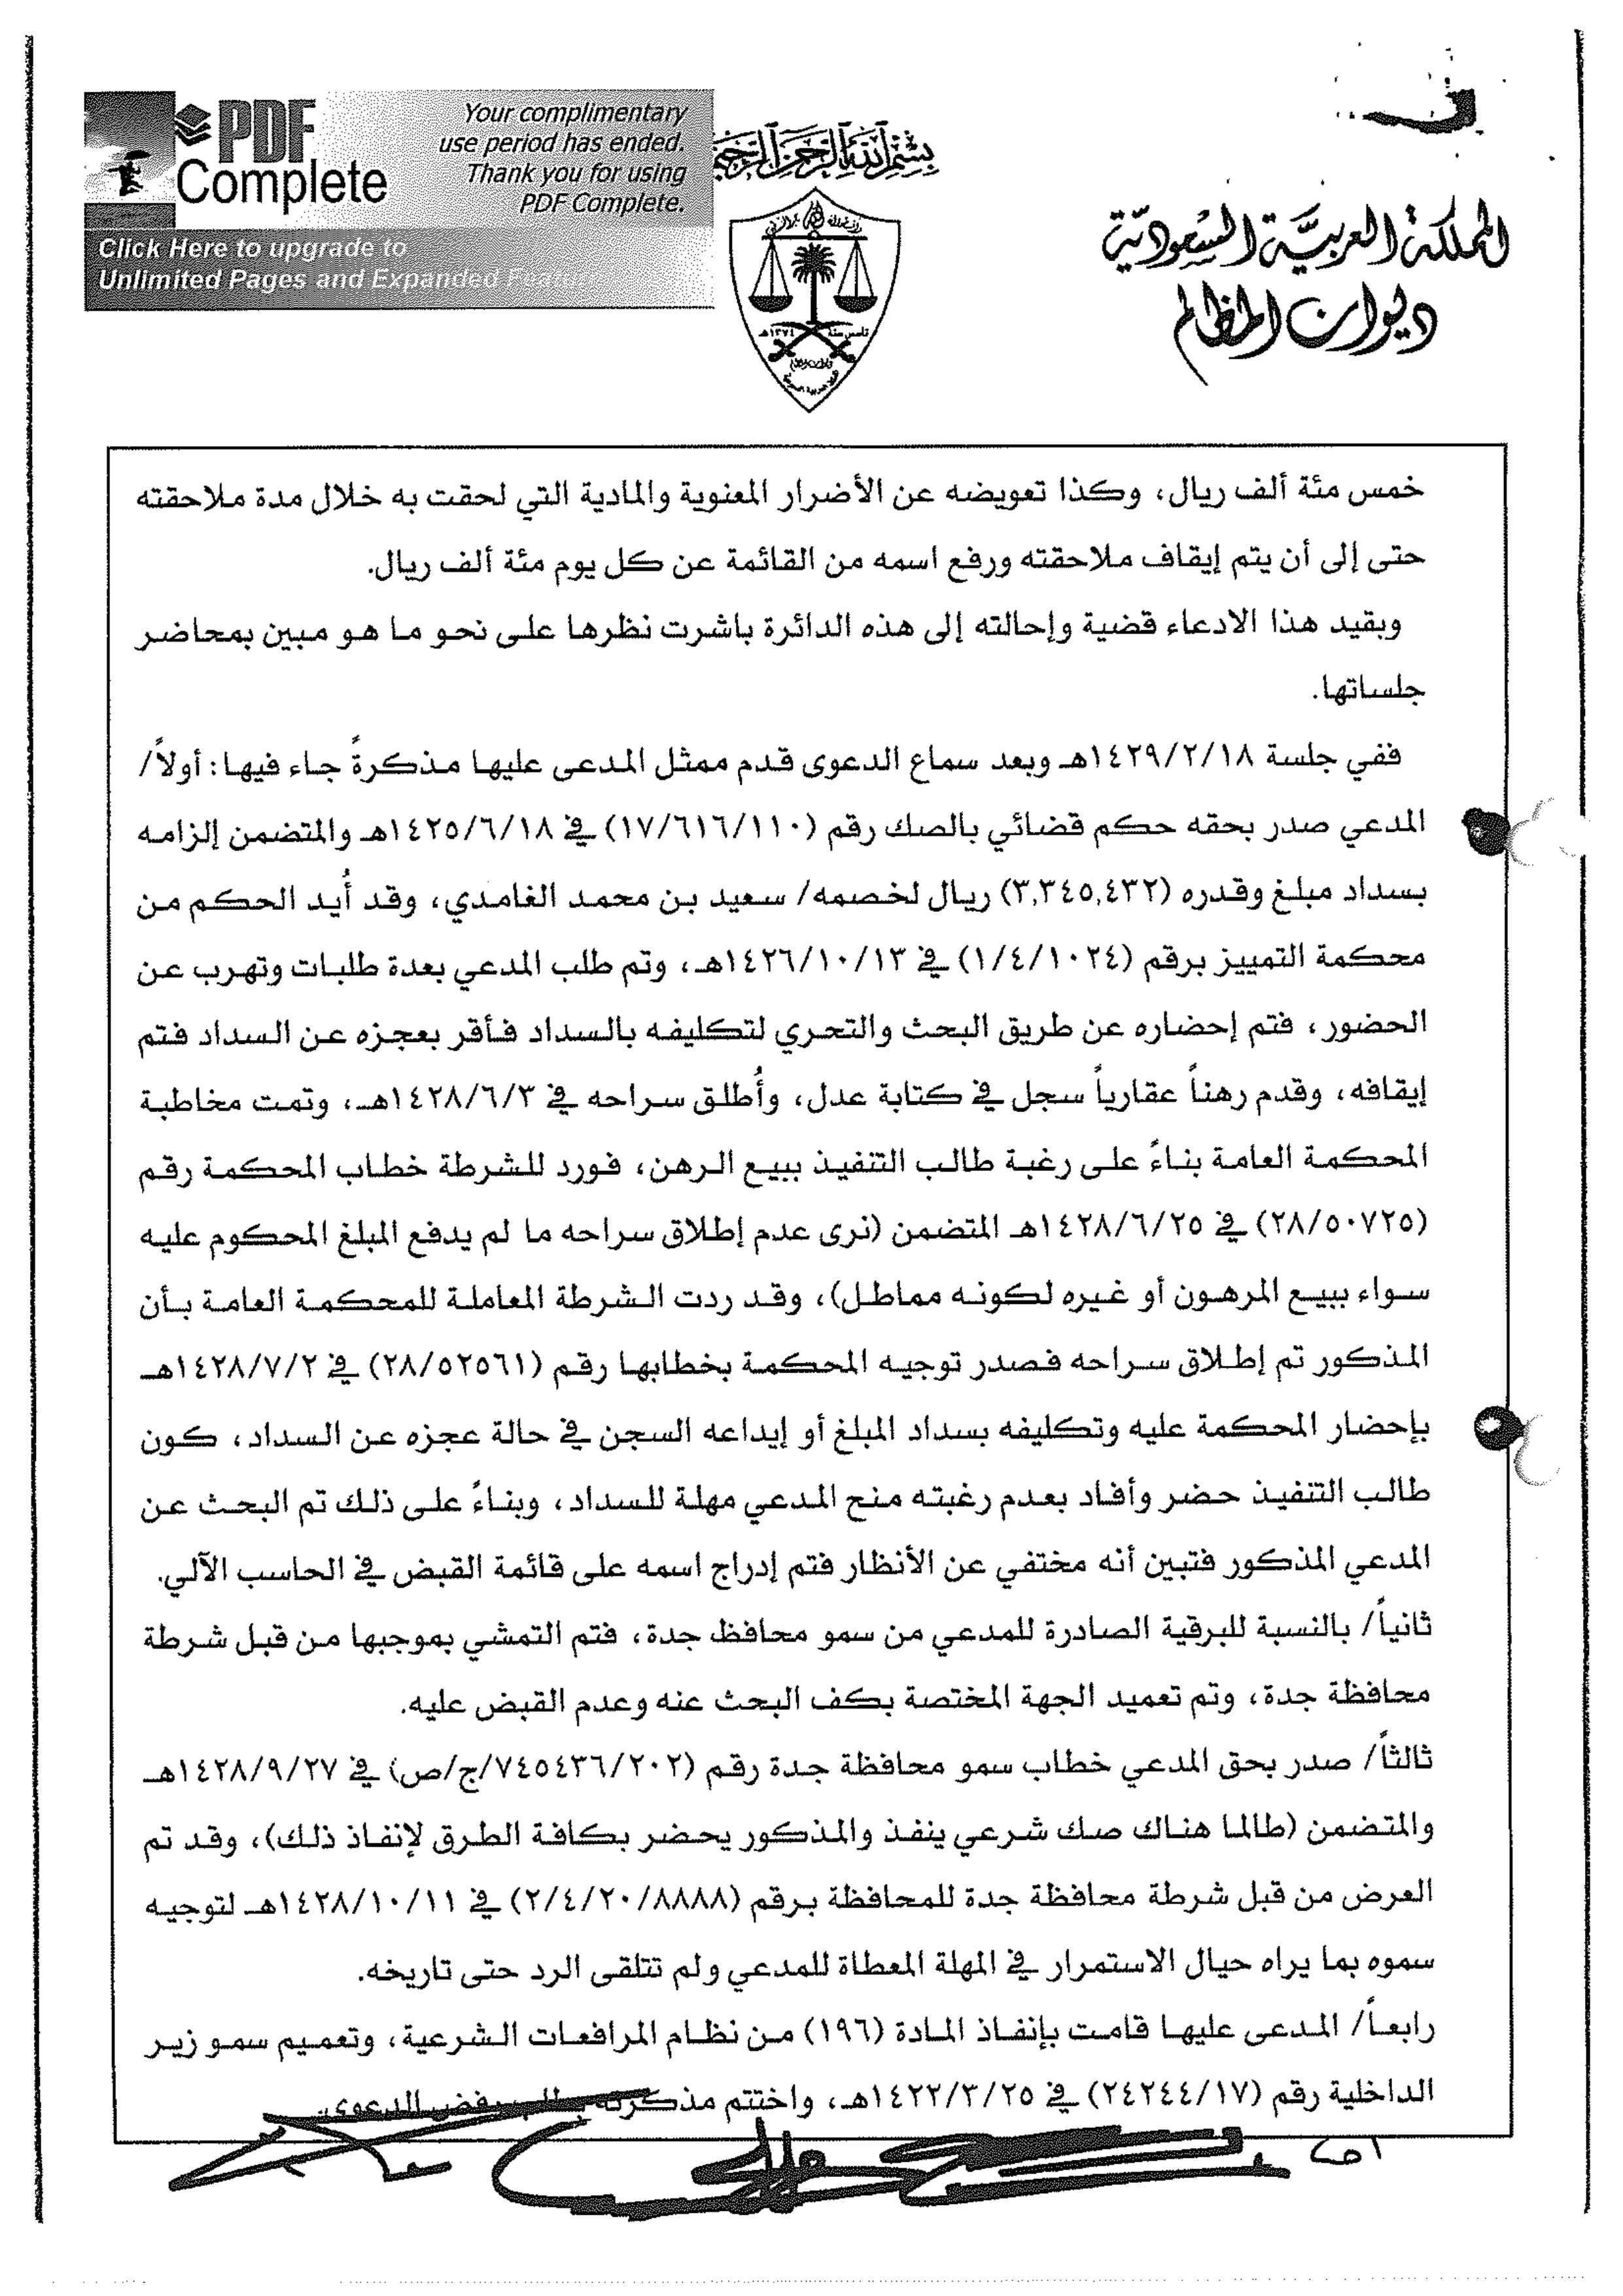 PDF Complete
Your complimentary
use period has ended.
Thank you for using
PDF Complete.
Click Here to upgrade to
Unlimited Pages and Expanded Features
بسم الله الرحمن الرحيم
المملكة العربية السعودية
ديوان المظالم
تأسس سنة ١٣٧٤هـ
خمس مئة ألف ريال، وكذا تعويضه عن الأضرار المعنوية والمادية التي لحقت به خلال مدة ملاحقته
حتى إلى أن يتم إيقاف ملاحقته ورفع اسمه من القائمة عن كل يوم مئة ألف ريال.
وبقيد هذا الادعاء قضية وإحالته إلى هذه الدائرة باشرت نظرها على نحو ما هو مبين بمحاضر
جلساتها.
ففي جلسة ١٤٢٩/٢/١٨هـ وبعد سماع الدعوى قدم ممثل المدعى عليها مذكرةً جاء فيها: أولاً/
المدعي صدر بحقه حكم قضائي بالصك رقم (١٧/٦١٦/١١٠) في ١٤٢٥/٦/١٨هـ والمتضمن إلزامه
بسداد مبلغ وقدره (٣,٣٤٥,٤٣٢) ريال لخصمه/ سعيد بن محمد الغامدي، وقد أُيد الحكم من
محكمة التمييز برقم (١/٤/١٠٢٤) في ١٤٢٦/١٠/١٣هـ، وتم طلب المدعي بعدة طلبات وتهرب عن
الحضور، فتم إحضاره عن طريق البحث والتحري لتكليفه بالسداد فأقر بعجزه عن السداد فتم
إيقافه، وقدم رهناً عقارياً سجل في كتابة عدل، وأُطلق سراحه في ١٤٢٨/٦/٣هـ، وتمت مخاطبة
المحكمة العامة بناءً على رغبة طالب التنفيذ ببيع الرهن، فورد للشرطة خطاب المحكمة رقم
(٢٨/٥٠٧٢٥) في ١٤٢٨/٦/٢٥هـ المتضمن (نرى عدم إطلاق سراحه ما لم يدفع المبلغ المحكوم عليه
سواء ببيع المرهون أو غيره لكونه مماطل)، وقد ردت الشرطة المعاملة للمحكمة العامة بأن
المذكور تم إطلاق سراحه فصدر توجيه المحكمة بخطابها رقم (٢٨/٥٢٥٦١) في ١٤٢٨/٧/٢هـ
بإحضار المحكمة عليه وتكليفه بسداد المبلغ أو إيداعه السجن في حالة عجزه عن السداد، كون
طالب التنفيذ حضر وأفاد بعدم رغبته منح المدعي مهلة للسداد، وبناءً على ذلك تم البحث عن
المدعي المذكور فتبين أنه مختفي عن الأنظار فتم إدراج اسمه على قائمة القبض في الحاسب الآلي.
ثانياً/ بالنسبة للبرقية الصادرة للمدعي من سمو محافظ جدة، فتم التمشي بموجبها من قبل شرطة
محافظة جدة، وتم تعميد الجهة المختصة بكف البحث عنه وعدم القبض عليه.
ثالثاً/ صدر بحق المدعي خطاب سمو محافظة جدة رقم (٧٤٥٤٣٦/٢٠٢/ج/ص) في ١٤٢٨/٩/٢٧هـ
والمتضمن (طالما هناك صك شرعي ينفذ والمذكور يحضر بكافة الطرق لإنفاذ ذلك)، وقد تم
العرض من قبل شرطة محافظة جدة للمحافظة برقم (٢/٤/٢٠/٨٨٨٨) في ١٤٢٨/١٠/١١هـ لتوجيه
سموه بما يراه حيال الاستمرار في المهلة المعطاة للمدعي ولم تتلقى الرد حتى تاريخه.
رابعاً/ المدعى عليها قامت بإنفاذ المادة (١٩٦) من نظام المرافعات الشرعية، وتعميم سمو زير
الداخلية رقم (٢٤٢٤٤/١٧) في ١٤٢٢/٣/٢٥هـ، واختتم مذكرته بطلب رفض الدعوى.